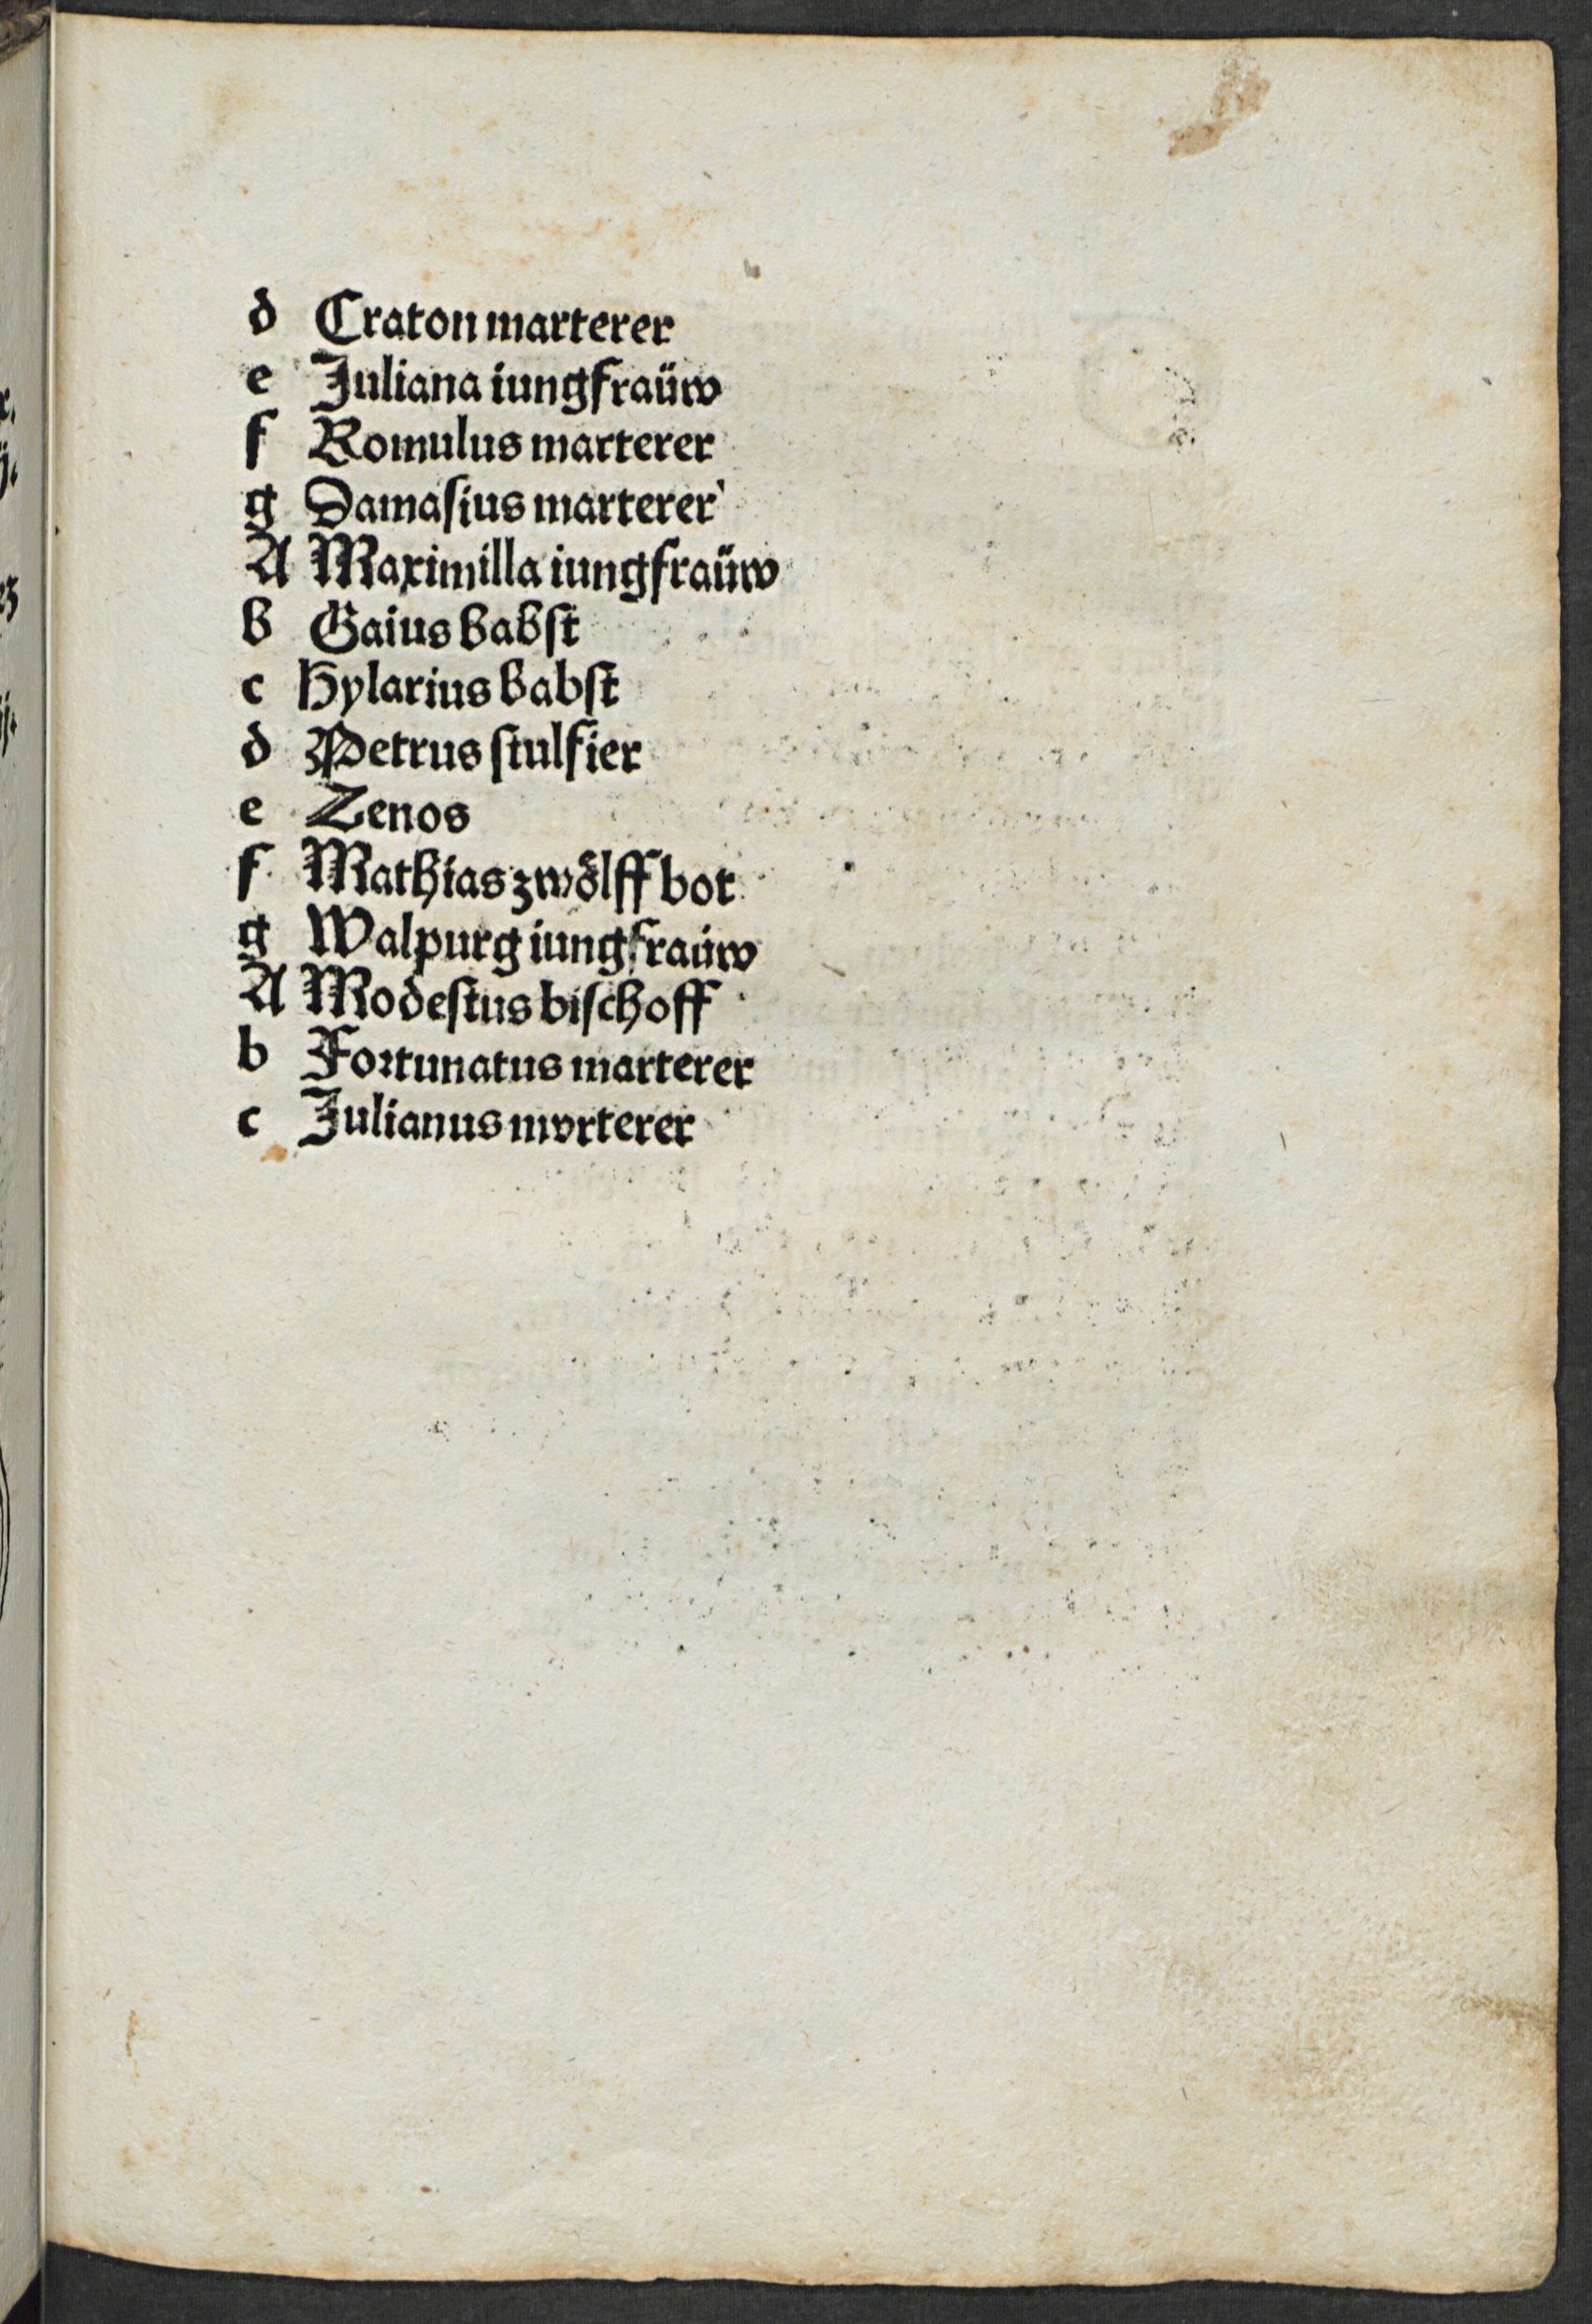 d Craton marterer
e Juliana iungfraüw
f Romulus marterer
g Damasius marterer
A Maximilla iungfraüw
b Gaius babſt
c Hylarius babſt
d Petrus ſtulfier
e Zenos
f Mathias zwoͤlff bot
g Walpurg iungfraüw
A Modeſtus biſchoff
b Fortunatus marterer
c Julianus morterer